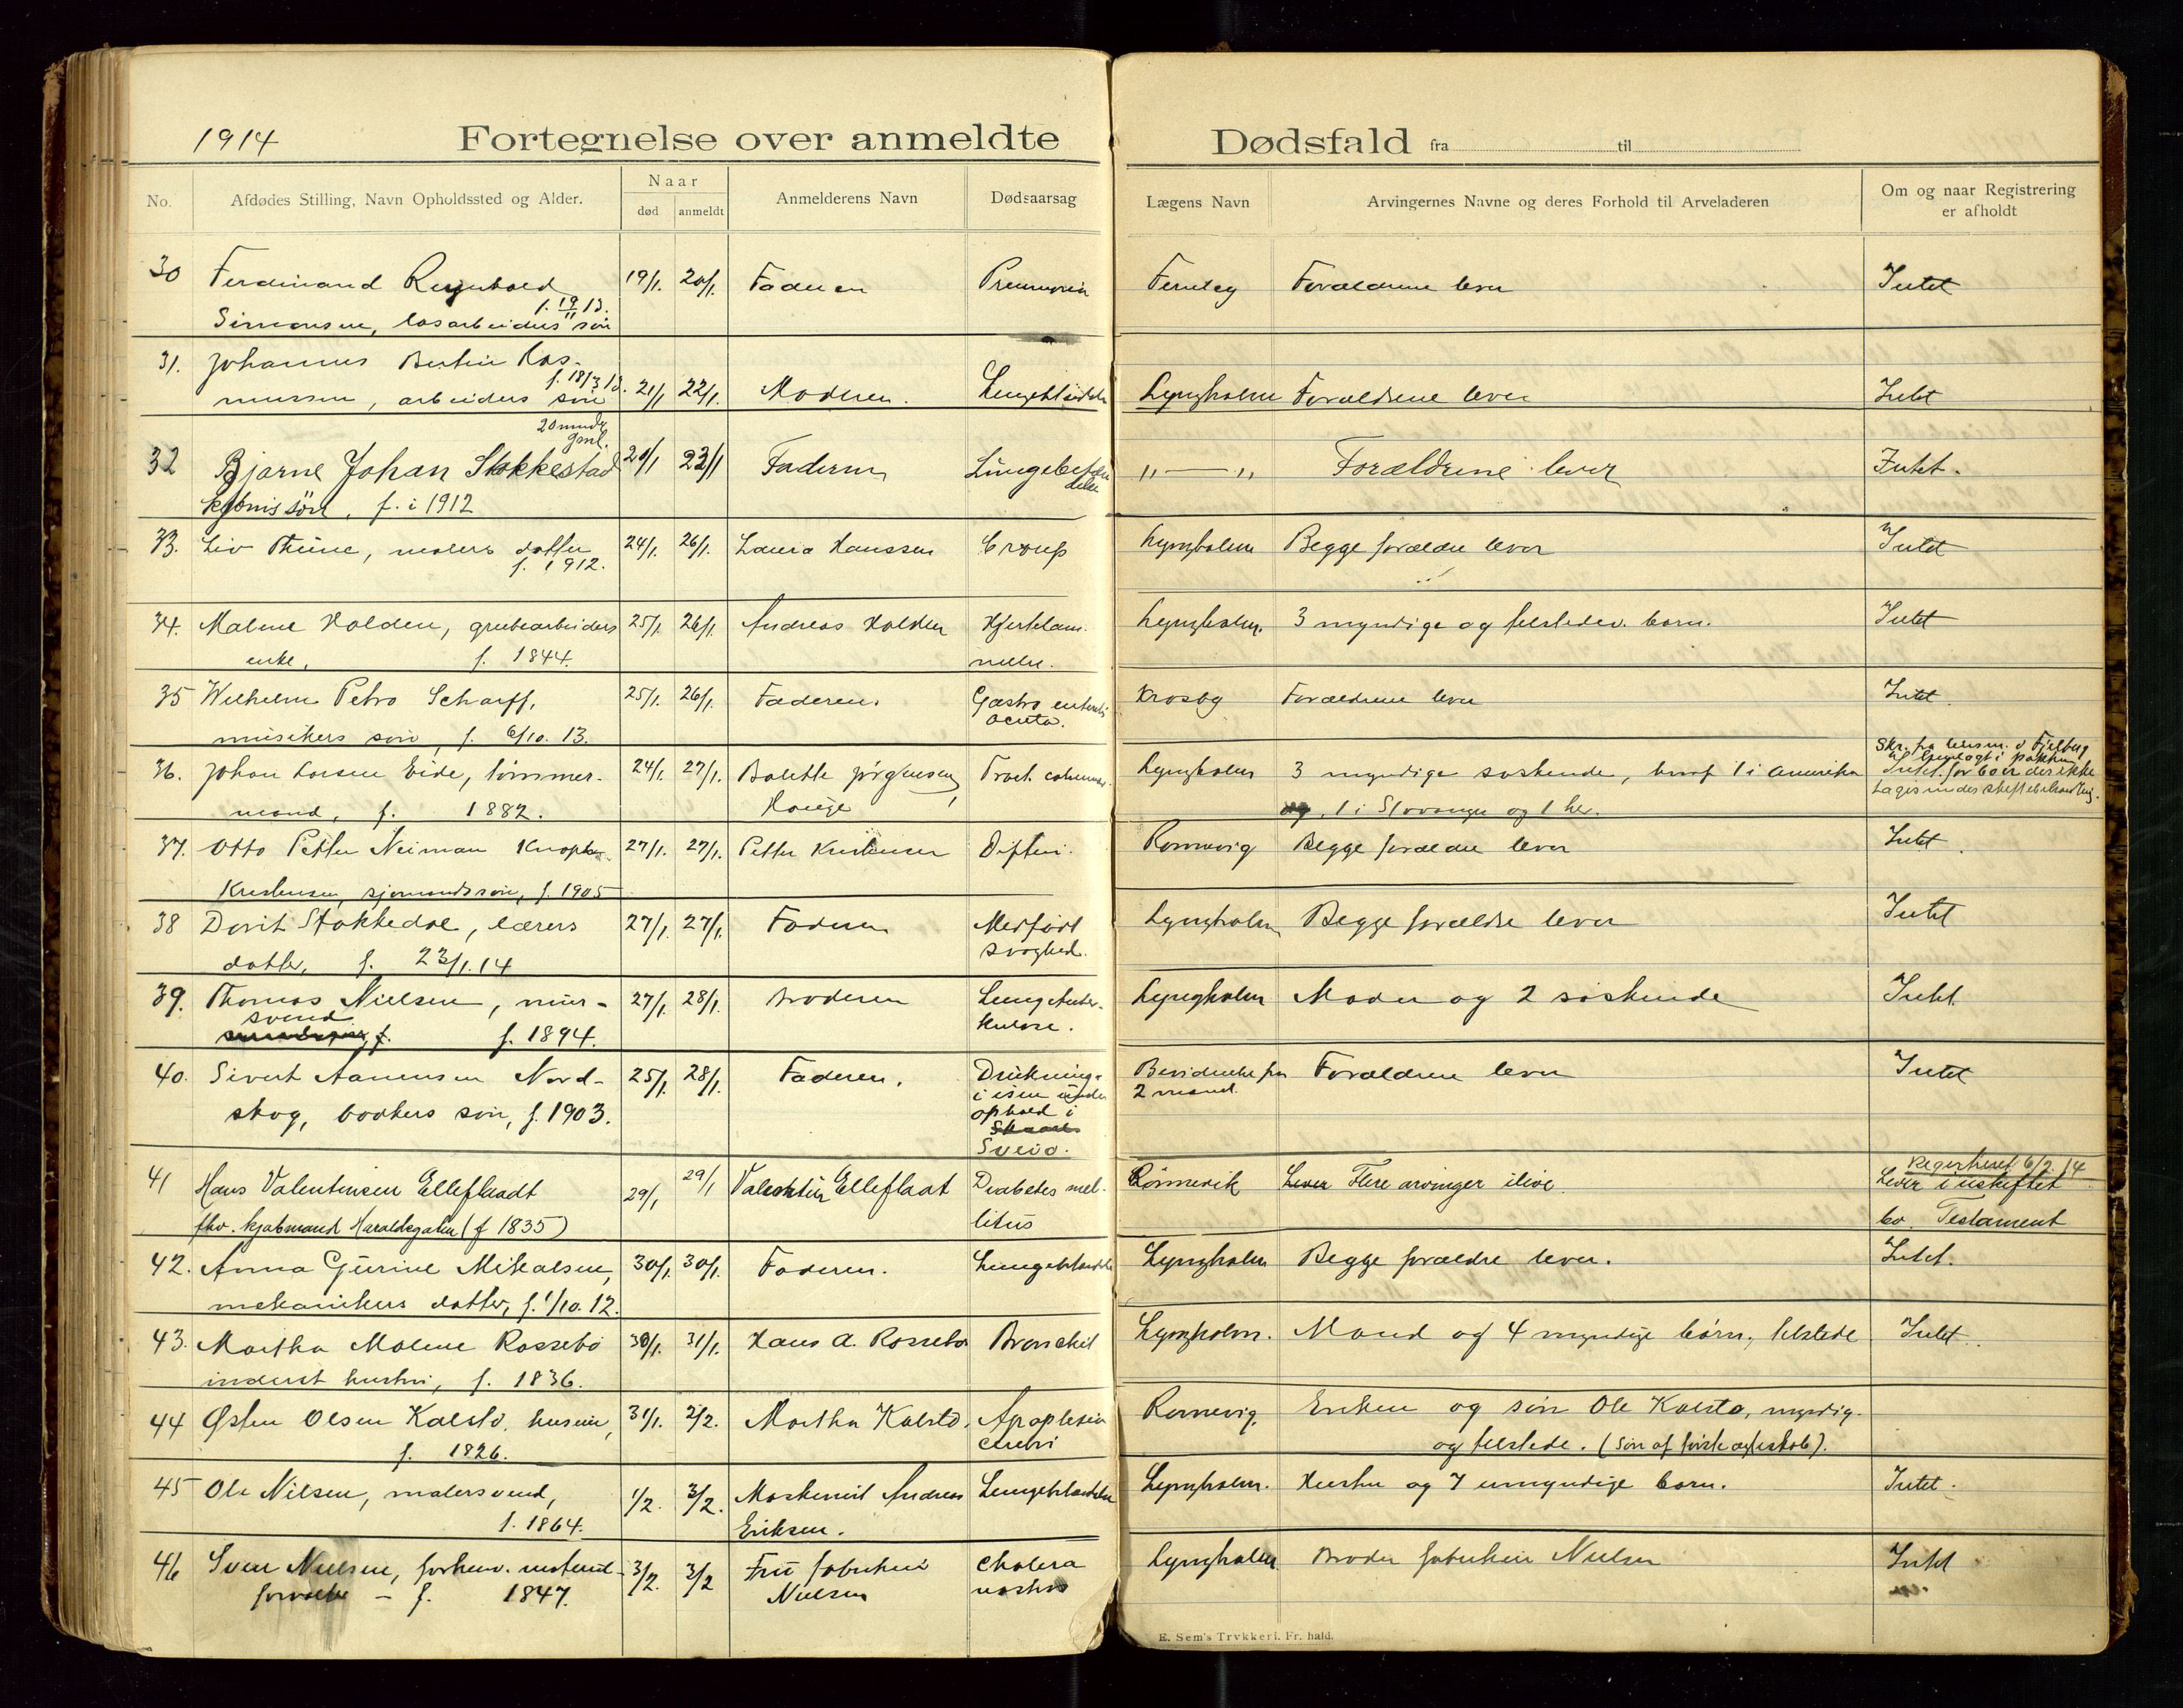 1914 Fortegnelse over anmeldte Dødsfald fra til
No. Afdødes Stilling, Navn Opholdssted og Alder. Naar død anmeldt Anmelderens Navn Dødsaarsag Lægens Navn Arvingernes Navne og deres Forhold til Arveladeren Om og naar Registrering er afholdt
30 Ferdinand 19/1. 20/1. Faderen Forældrene lever Intet
Simonsen, løsarbeiders søn
31. Johannes Ras-
mussen, arbeiders søn 21/1 22/1. Moderen. Lyngholm Forældrene lever Intet
20 mndr gml.
32 Bjarne Johan Stokkestad 23/1 Faderen ,,—,, Forældrene lever Intet.
f. i 1912
33. Liv Thime, malers datter 24/1. 26/1. Laura Hanssen Croup Lyngholm Begge forældre lever Intet
f. 1912.
34. Malene Holden, grubearbeiders 25/1. 26/1. Andreas Holden Hjertelam- Lyngholm. 3 myndige og børn. Intet
enke, f. 1844. melse.
35 Wilhelm Petro Scharff, 25/1. 26/1. Faderen. Gastro enteritis Krosby Forældrene lever Intet.
musikers søn, f. 6/10. 13. acuta.
36. Johan Larsen Eide, tømmer- 24/1. 27/1. Bolette Jørgensen Lyngholm 3 myndige søskende, hvoraf 1 i Amerika
mand, f. 1882. Hauge , 1 i Stavanger og 1 her.
37. Otto Petter Neiman 27/1. 27/1. Petter Kristensen Difteri. Rønnevig Begge forældre lever Intet.
Kristensen, sjømands søn, f. 1905
38 Dorit Stokkedal, lærers 27/1. 27/1. Faderen Medfødt Lyngholm Begge forældre lever Intet
datter, f. 23/1.14 svaghed.
39. Thomas Nielsen, mur- 27/1. 28/1. Broderen Lungetuber- Lyngholm Moder og 2 søskende Intet
svend f. 1894. kulose.
40. Sivert Aanensen Nord- 25/1. 28/1. Faderen. Drukning Bevidnelse fra Forældrene lever Intet
skog, bødkers søn, f. 1903. i isen under 2 mand.
ophold i
Sveio.
41 Hans Valentinsen Elleflaadt 29/1 29/1 Valentin Elleflaat Diabetes mel- Rönnevik Flere arvinger ilive. Registreret 6/2. 14
fhv. kjøbmand Haraldsgaten (f 1835) litus Lever i uskiftet
bo. Testament
42. Anna Gurine Mikalsen, 30/1. 30/1. Faderen. Lyngholm Begge forældre lever. Intet.
mekanikers datter, f. 1/10. 12.
43. Martha Malene Rossebø 30/1. 31/1. Hans A. Rossebø Bronchit Lyngholm. Mand og 4 myndige børn, Intet.
inderst hustru, f. 1836.
44 Østen Olsen Kalstø, husmn, 31/1. 2/2. Martha Kalstø. Apoplexia Rønnevig. Enken og søn Ole Kalstø, myndig
f. 1826. cerebri og (søn af første ægteskab).
45 Ole Nilsen, malersvend, 1/2. 3/2. Maskinist Andreas Lyngholm. Hustru og 7 umyndige børn. Intet.
f. 1864. Eriksen.
46 Sven Nielsen, forhenv. material- 3/2. 3/2 Fru fabrikeier Cholera Lyngholm. Broder fabrikeier Nielsen Intet
forvalter - f. 1847. Nielsen nostras
E. Sem's Trykkeri. Fr. hald.